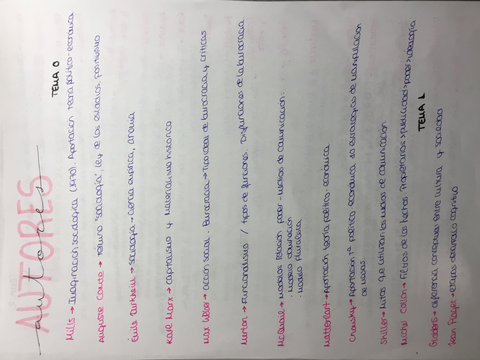 AUTORES
autores
TEMA 0
Mills → Imaginación Sociológica (1970). Aportación teoría político-económica
Auguste Comte → término "sociología", ley de los estadios, positivismo
Émile Durkheim → sociología → ciencia empírica, anomia
Karl Marx → capitalismo y materialismo histórico
Max Weber → acción social. Burocracia → Tipo ideal de burocracia y críticas
Merton → Funcionalismo / tipos de funciones. Disfunciones de la burocracia
McQuail → modelos relación poder-medios de comunicación:
· Modelo dominación
· Modelo pluralista
Mattelart → Aportación teoría político-económica
Chomsky → Aportación tª político económica. 10 estrategias de manipulación
de masas.
Shiller → Mitos que utilizan los medios de comunicación
Michel Collon → Filtros de los hechos: Propietarios > publicidad > poder > ideología
TEMA 1
Giddens → diferencia conceptual entre cultura y sociedad
Jean Piaget → etapas desarrollo cognitivo